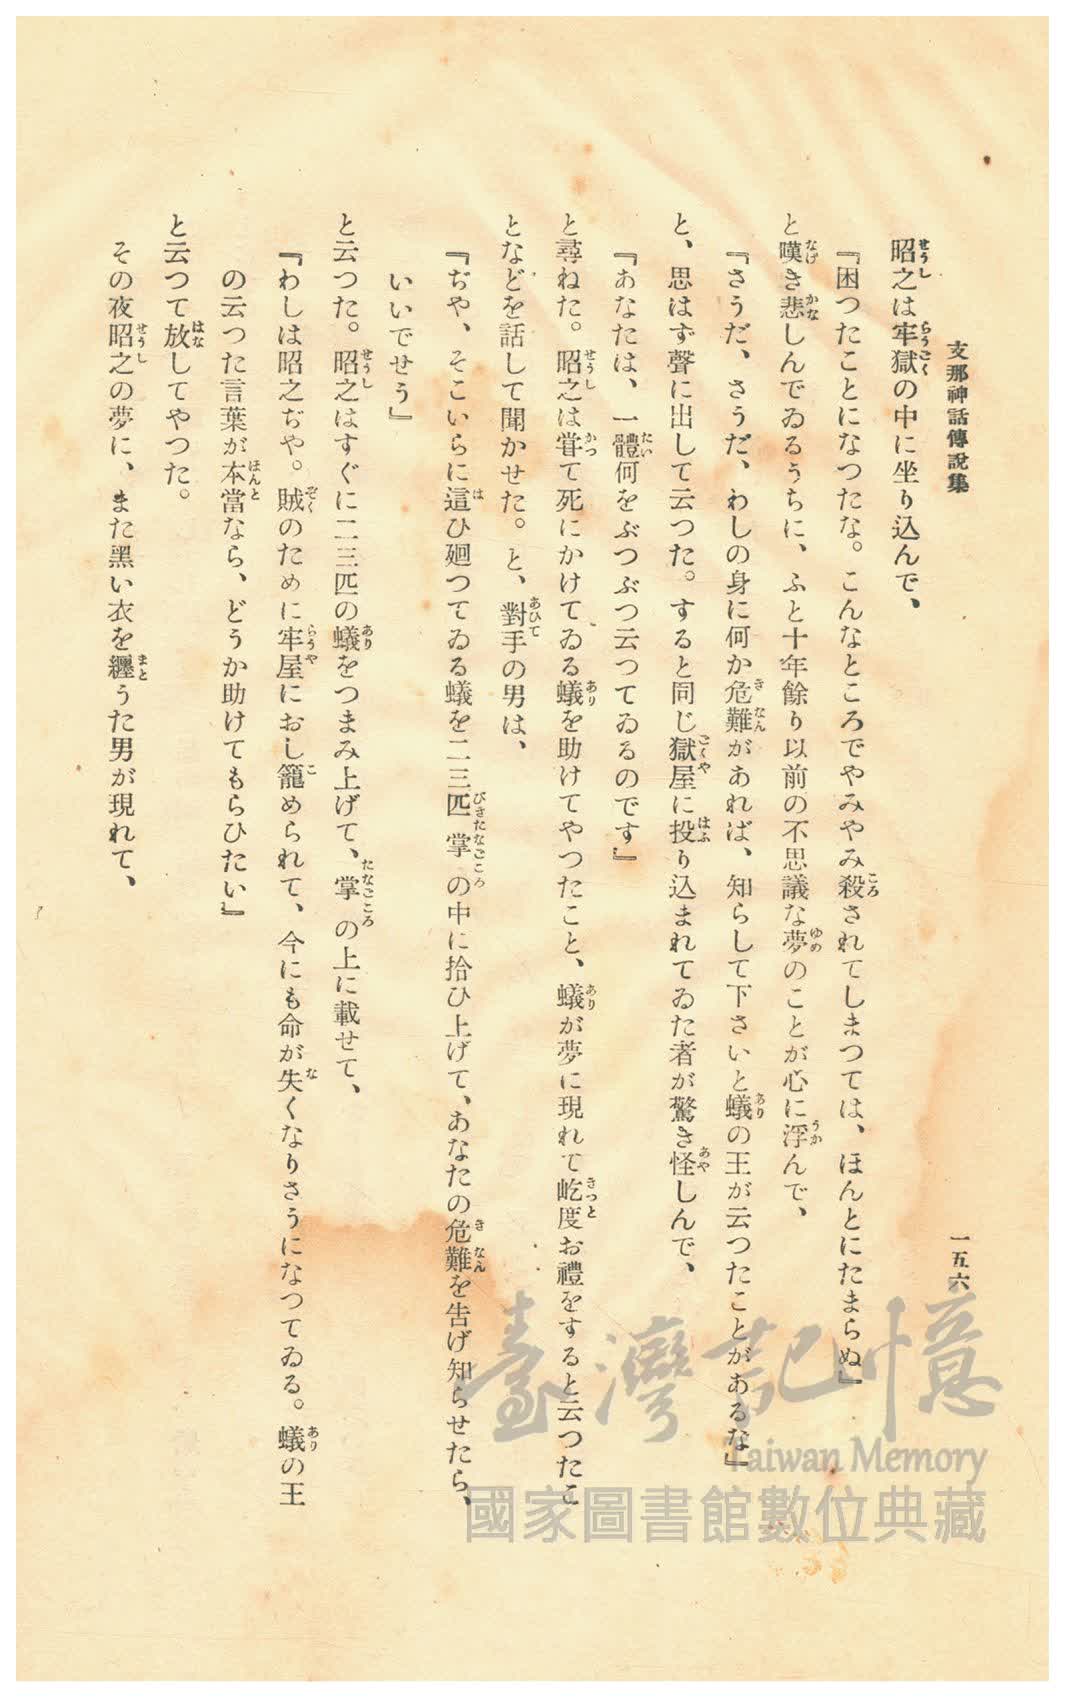 支那神話傳說集
一五六
昭之は牢獄の中に坐り込んで、
『困つたことになつたな。こんなところでやみやみ殺されてしまつては、ほんとにたまらぬ』
と嘆き悲しんでゐるうちに、ふと十年餘り以前の不思議な夢のことが心に浮んで、
『さうだ、さうだ、わしの身に何か危難があれば、知らして下さいと蟻の王が云つたことがあるな』
と、思はず聲に出して云つた。すると同じ獄屋に投り込まれてゐた者が驚き怪しんで、
『あなたは、一體何をぶつぶつ云つてゐるのです』
と尋ねた。昭之は甞て死にかけてゐる蟻を助けてやつたこと、蟻が夢に現れて屹度お禮をすると云つたこ
となどを話して聞かせた。と、對手の男は、
『ぢや、そこいらに這ひ廻つてゐる蟻を二三匹掌の中に拾ひ上げて、あなたの危難を告げ知らせたら、
いいでせう』
と云つた。昭之はすぐに二三匹の蟻をつまみ上げて、掌の上に載せて、
『わしは昭之ぢや。賊のために牢屋におし籠められて、今にも命が失くなりさうになつてゐる。蟻の王
の云つた言葉が本當なら、どうか助けてもらひたい』
と云つて放してやつた。
その夜昭之の夢に、また黑い衣を纏うた男が現れて、
臺灣記憶
Taiwan Memory
國家圖書館數位典藏